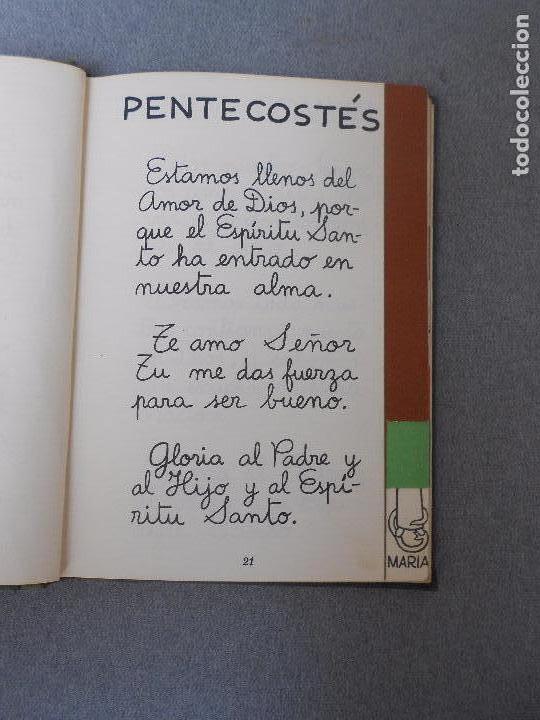 PENTECOSTÉS
Estamos llenos del
Amor de Dios, por-
que el Espíritu San-
to ha entrado en
nuestra alma.
Te amo Señor
Tu me das fuerza
para ser bueno.
Gloria al Padre y
al Hijo y al Espí-
ritu Santo.
21
MARIA
todocoleccion.net